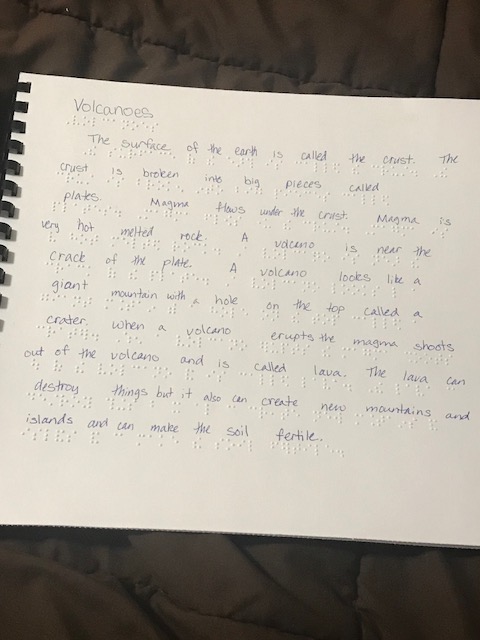 Volcanoes
The surface of the earth is called the crust. The
crust is broken into big pieces called
plates. Magma flows under the crust. Magma is
very hot melted rock. A volcano is near the
crack of the plate. A volcano looks like a
giant mountain with a hole on the top called a
crater. When a volcano erupts the magma shoots
out of the volcano and is called lava. The lava can
destroy things but it also can create new mountains and
islands and can make the soil fertile.